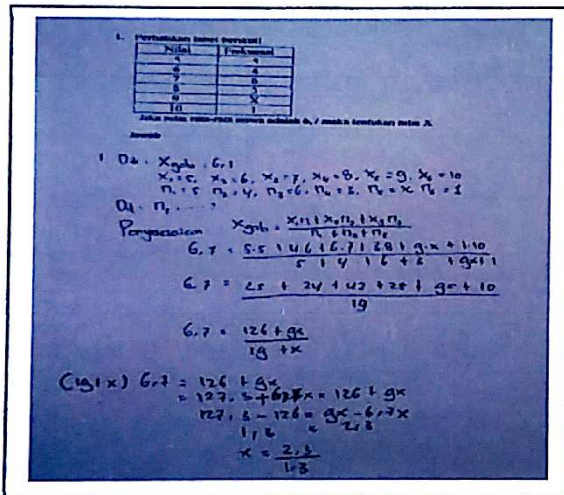 1. Perhatikan tabel berikut!
Nilai Frekuensi
5 5
6 4
7 6
8 3
9 X
10 1
Jika nilai rata-rata siswa adalah 6,7 maka tentukan nilai X.
Jawab
1 Dik : Xgab : 6,7
X₁=5, X₂=6, X₃=7, X₄=8, X₅=9, X₆=10
n₁=5 n₂=4, n₃=6, n₄=3, n₅=x n₆=1
Dit = n₅ ....?
Penyelesaian Xgab = x₁n₁+x₂n₂+x₃n₃
n₁+n₂+n₃
6,7 = 5.5 + 4.6 + 6.7 + 3.8 + 9.x + 1.10
5 + 4 + 6 + 3 + 9x+1
6,7 = 25 + 24 + 42 + 25 + 9x + 10
19
6,7 = 126 + 9x
19 + x
(19+x) 6,7 = 126 + 9x
= 127,3 + 6,7x = 126 + 9x
127,3 - 126 = 9x - 6,7x
1,3 = 2,3
x = 2,3
1,3